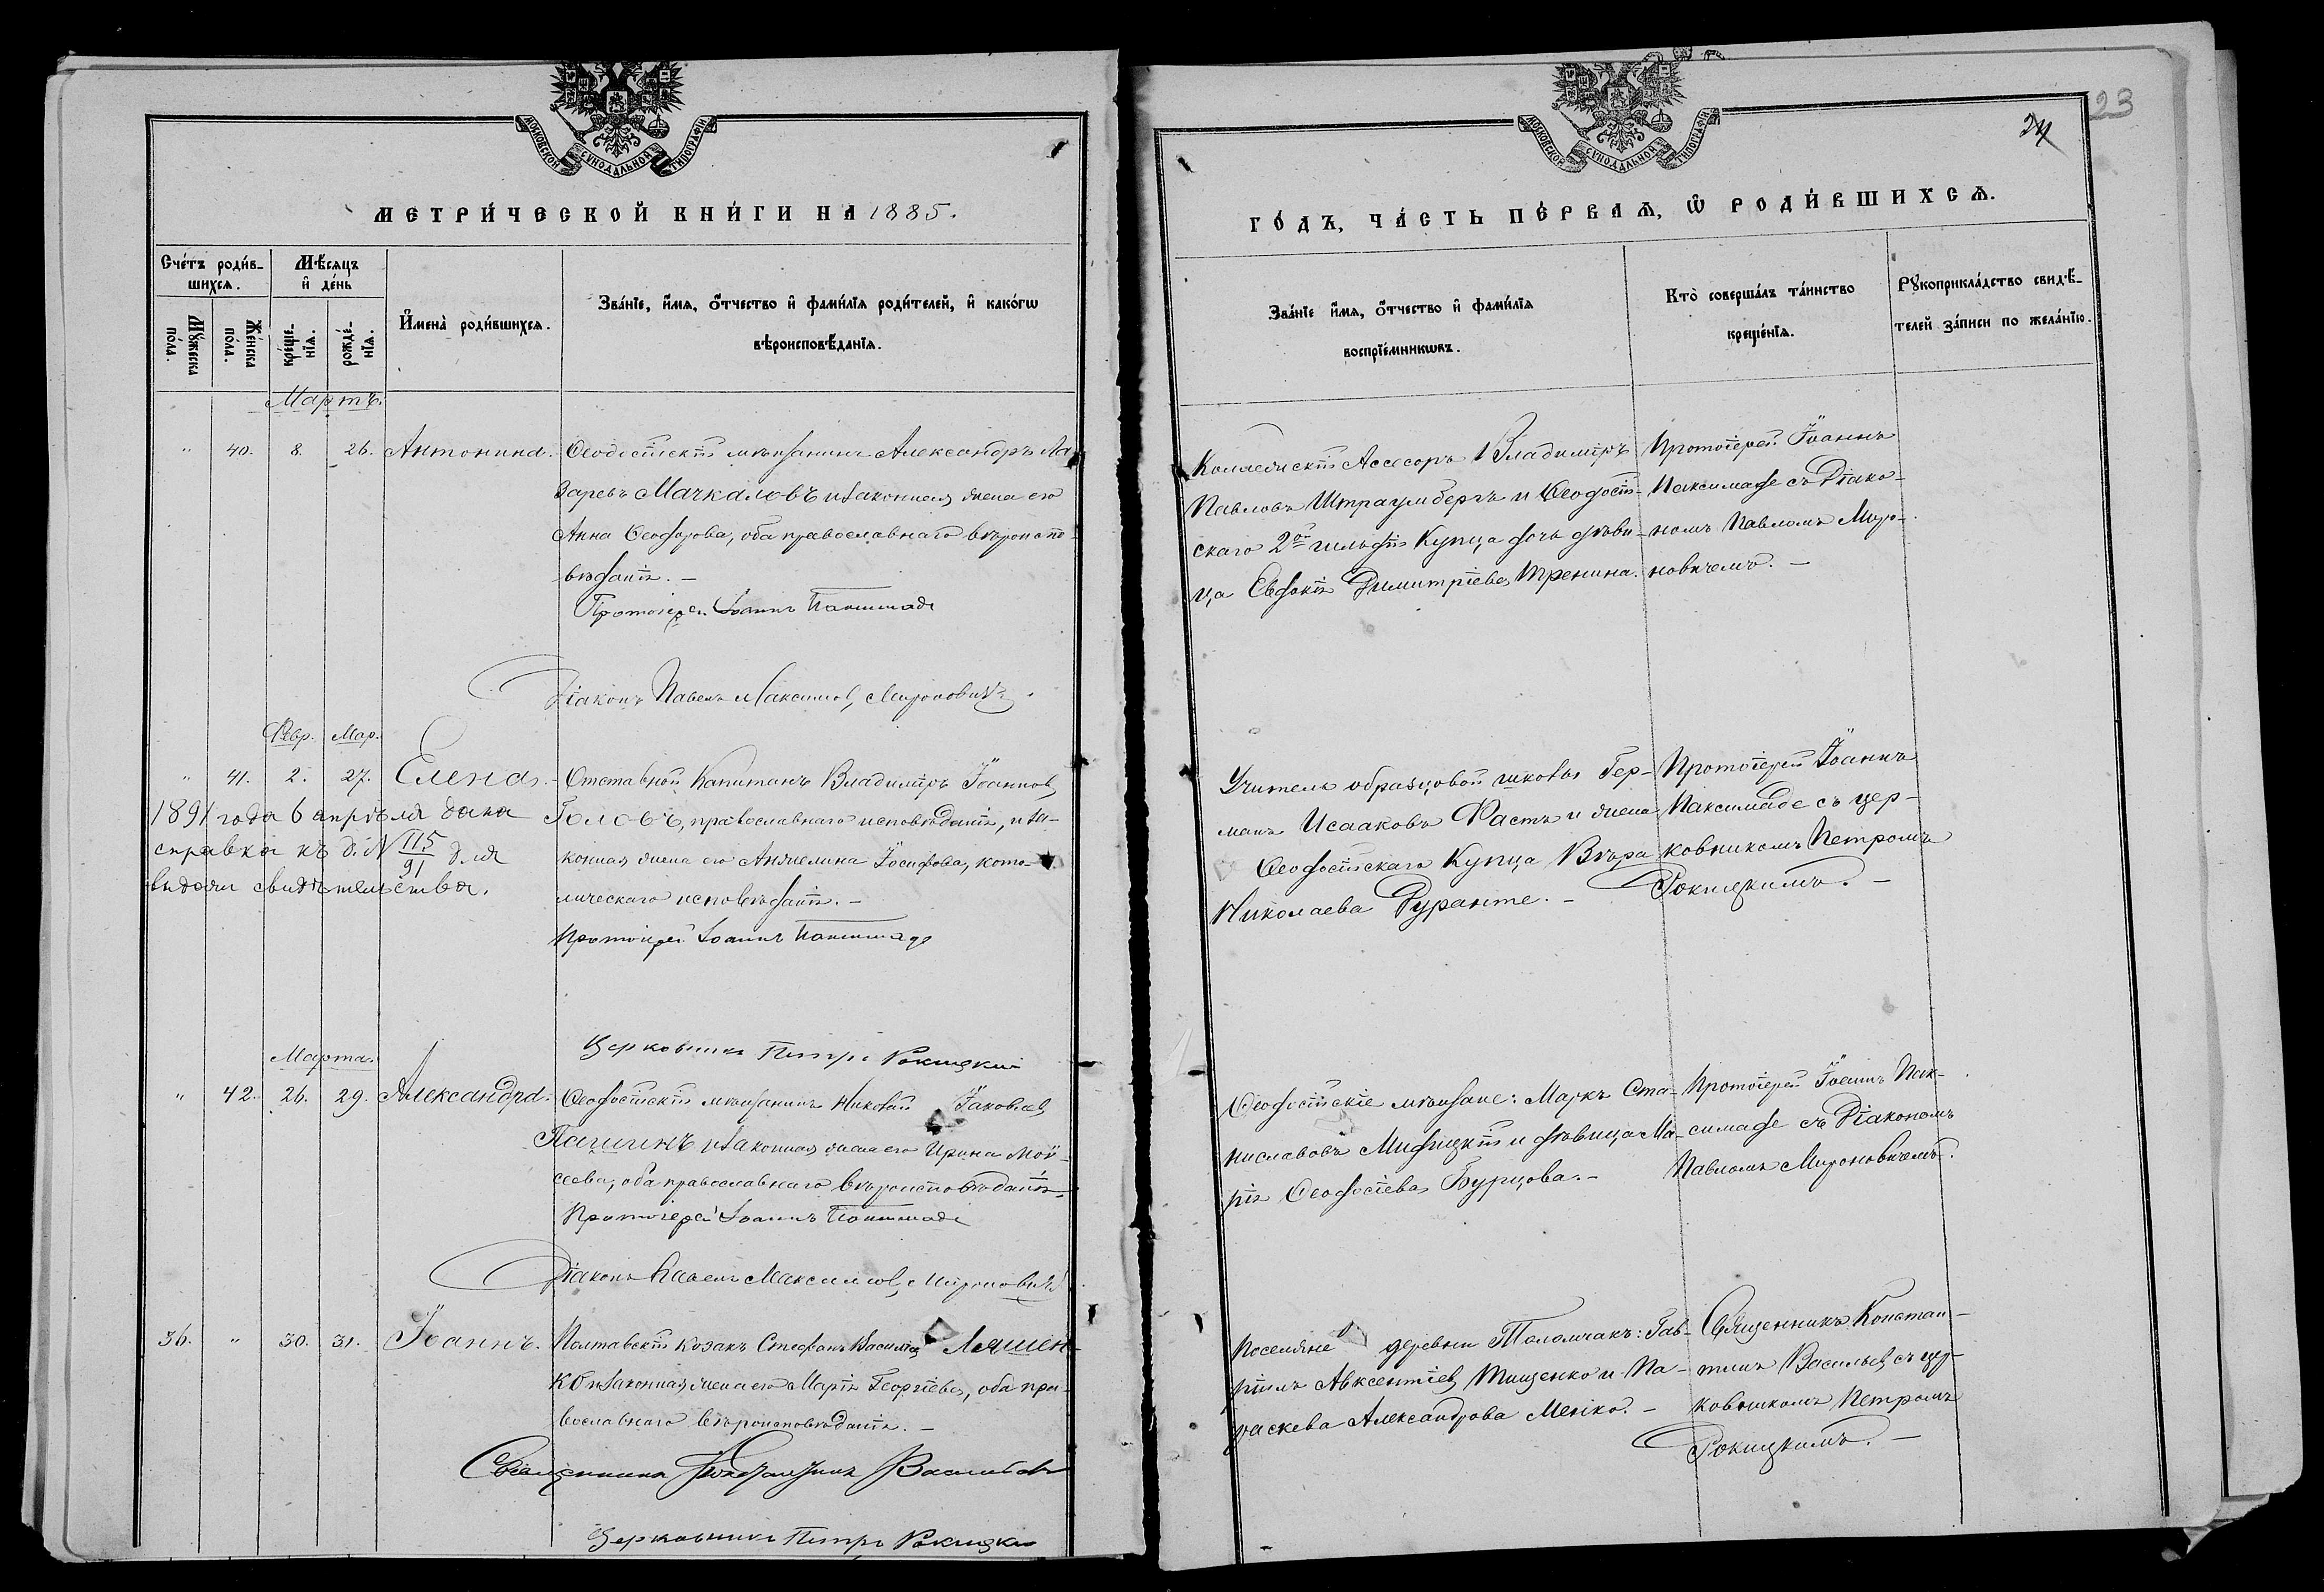 МОСКОВСКОЙ СѴНОДАЛЬНОЙ ТИПОГРАФІИ
МЕТРИ́ЧЕСКОЙ КНИ́ГИ НА 1885.
Сче́тъ роди́в-
шихсѧ.
Мѣ́сѧцъ
и҆ де́нь
Мꙋ́жеска
по́ла.
Же́нска
по́ла.
креще́-
нїѧ.
рожде́-
нїѧ.
И҆мена̀ роди́вшихсѧ.
Зва́нїе, и҆́мѧ, ѻ҆́тчество и҆ фами́лїѧ роди́телей, и҆ како́гѡ
вѣроисповѣ́данїѧ.
Мартъ.
" 40. 8. 26. Антонина. Ѳеодосійскій мѣщанинъ Александръ Ла-
заревъ Мачкаловъ и законная жена его
Анна Ѳеодорова, оба православнаго вѣроиспо-
вѣданія. –
Протоіерей Іоаннъ Пакшимаде
Діаконъ Павелъ Максимов. Мироновичъ.
Февр. Мар.
" 41. 2. 27. Елена. Отставной Капитанъ Владиміръ Іоаннов.
Головъ, православнаго исповѣданія, и за-
конная жена его Анжелина Іосифова, като-
лическаго исповѣданія. –
1891 года 6 апрѣля дана
справка къ д. № 115/91 для
выдачи свидѣтельства.
Протоіерей Іоаннъ Пакшимаде
Церковникъ Петръ Рокицкій
Марта.
" 42. 26. 29. Александра. Ѳеодосійскій мѣщанинъ Николай Іаковлев.
Пашинъ и законная жена его Ирина Мои-
сеева, оба православнаго вѣроисповѣданія.
Протоіерей Іоаннъ Пакшимаде
Діаконъ Павелъ Максимов. Мироновичъ
36. " 30. 31. Іоаннъ. Полтавскій козакъ Стефанъ Васильев. Ляшен-
ко и законная жена его Марія Георгіева, оба пра-
вославнаго вѣроисповѣданія. –
Священникъ Константинъ Васильевъ
Церковникъ Петръ Рокицкій
23
24
МОСКОВСКОЙ СѴНОДАЛЬНОЙ ТИПОГРАФІИ
ГО́ДЪ, ЧА́СТЬ ПЕ́РВАѦ, Ѡ҆ РОДИ́ВШИХСѦ.
Зва́нїе и҆́мѧ, ѻ҆́тчество и҆ фами́лїѧ
воспрїе́мникѡвъ.
Кто̀ соверша́лъ та́инство
креще́нїѧ.
Рꙋкоприкла́дство свидѣ́-
телей за́писи по жела́нїю.
Коллежскій Ассесоръ Владиміръ
Павловъ Штраумбергъ и Ѳеодосій-
скаго 2ой гильдіи Купца дочь дѣви-
ца Евдокія Димитріева Тренина.
Протоіерей Іоаннъ
Паксимаде съ Діако-
номъ Павломъ Миро-
новичемъ. –
Учитель образцовой школы Гер-
манъ Исааковъ Фастъ и жена
Ѳеодосійскаго Купца Вѣра
Николаева Дуранте. –
Протоіерей Іоаннъ
Паксимаде съ цер-
ковникомъ Петромъ
Рокицкимъ. –
Ѳеодосійскіе мѣщане: Маркъ Ста-
ниславовъ Мидицкій и дѣвица Ма-
рія Ѳеодосіева Бурцова. –
Протоіерей Іоаннъ Пак-
симаде съ Діакономъ
Павломъ Мироновичемъ.
Поселяне деревни Толомчакъ: Гав-
ріилъ Авксентіев. Тищенко и Па-
раскева Александрова Мелко. –
Священникъ Констан-
тинъ Васильев. съ цер-
ковникомъ Петромъ
Рокицкимъ. –